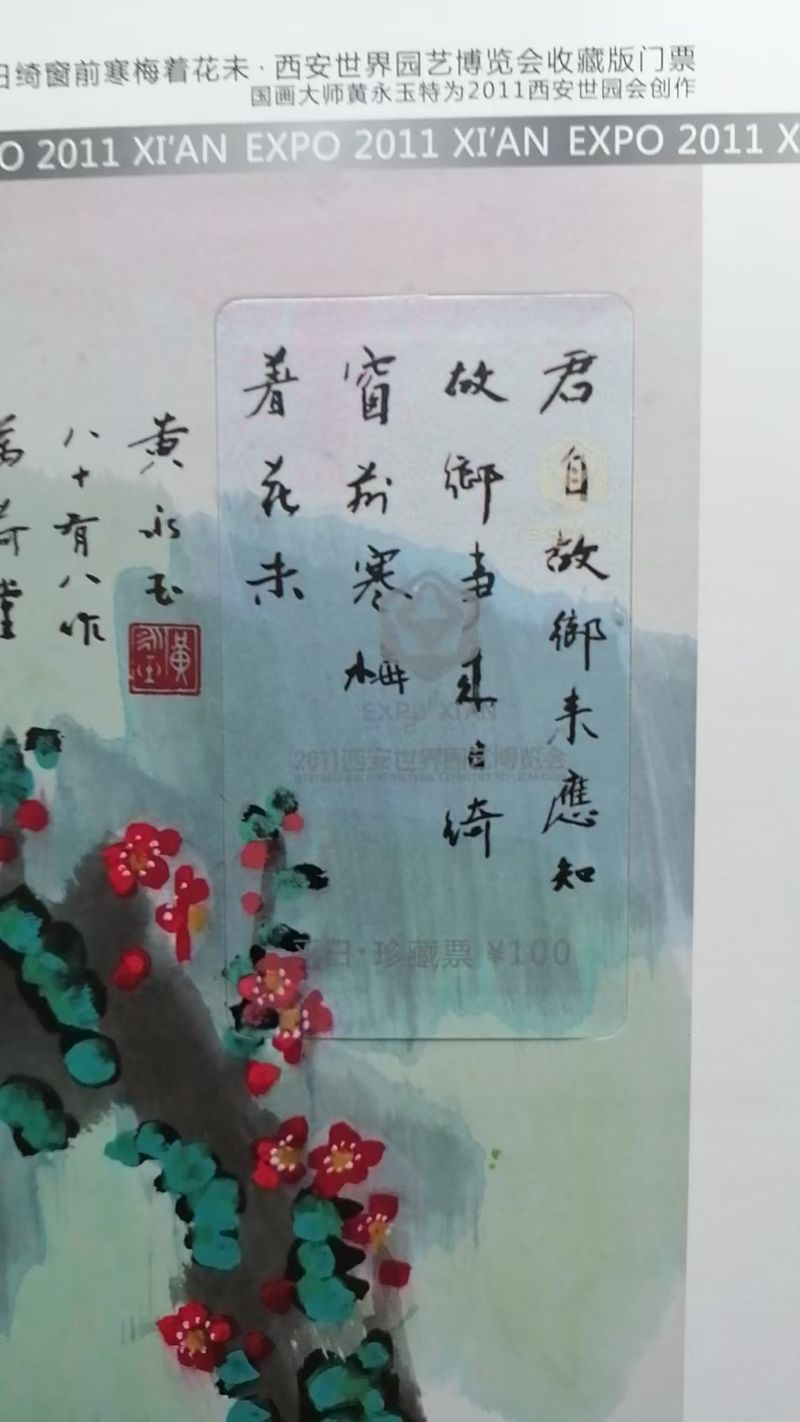 日绮窗前寒梅着花未·西安世界园艺博览会收藏版门票
国画大师黄永玉特为2011西安世园会创作
O 2011 XI'AN EXPO 2011 XI'AN EXPO 2011 X
君自故鄉来應知
故鄉事来日綺
窗前寒梅
着花未
黄永玉
八十有八作
萬荷堂
黄永玉
EXPO XI'AN
2011西安世界园艺博览会
平日·珍藏票 ¥100